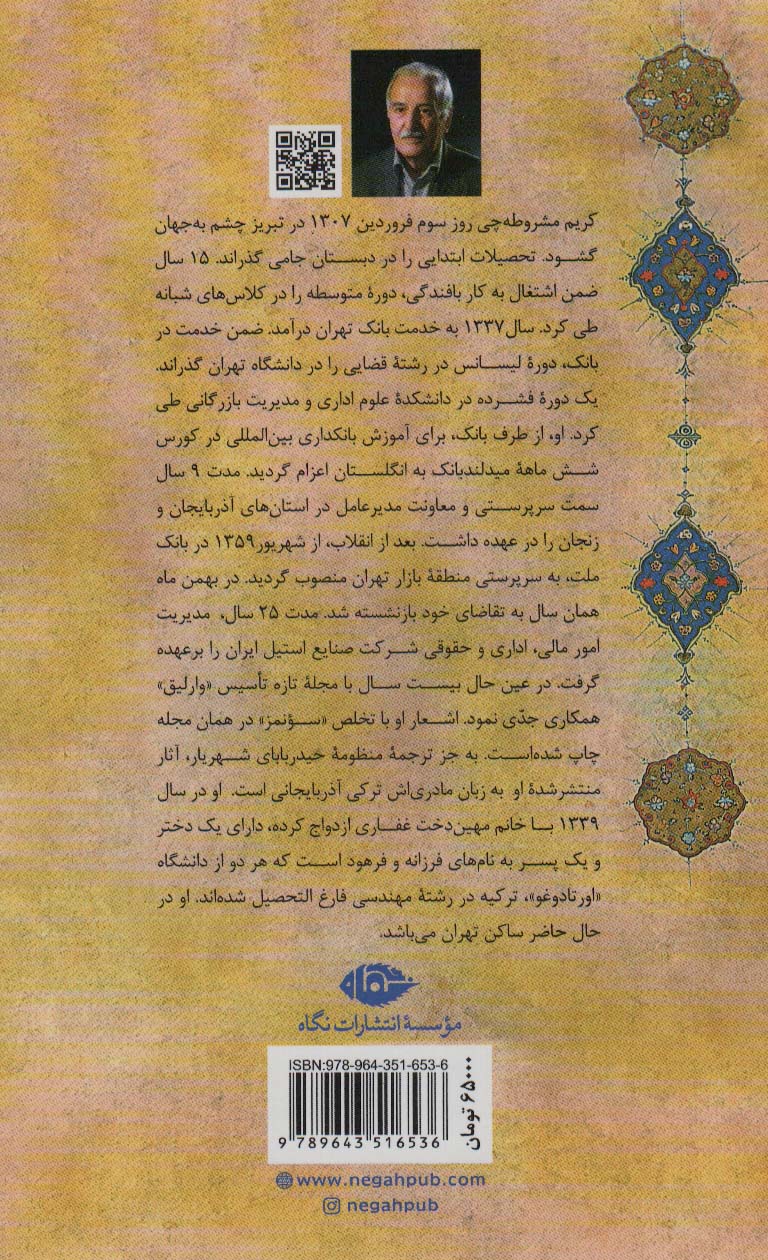 کریم مشروطه‌چی روز سوم فروردین ۱۳۰۷ در تبریز چشم به‌جهان
گشود. تحصیلات ابتدایی را در دبستان جامی گذراند. ۱۵ سال
ضمن اشتغال به کار بافندگی، دورۀ متوسطه را در کلاس‌های شبانه
طی کرد. سال۱۳۳۷ به خدمت بانک تهران درآمد. ضمن خدمت در
بانک، دورۀ لیسانس در رشتۀ قضایی را در دانشگاه تهران گذراند.
یک دورۀ فشرده در دانشکدۀ علوم اداری و مدیریت بازرگانی طی
کرد. او، از طرف بانک، برای آموزش بانکداری بین‌المللی در کورس
شش ماهۀ میدلندبانک به انگلستان اعزام گردید. مدت ۹ سال
سمت سرپرستی و معاونت مدیرعامل در استان‌های آذربایجان و
زنجان را در عهده داشت. بعد از انقلاب، از شهریور۱۳۵۹ در بانک
ملت، به سرپرستی منطقۀ بازار تهران منصوب گردید. در بهمن ماه
همان سال به تقاضای خود بازنشسته شد. مدت ۲۵ سال، مدیریت
امور مالی، اداری و حقوقی شرکت صنایع استیل ایران را برعهده
گرفت. در عین حال بیست سال با مجلۀ تازه تأسیس «وارلیق»
همکاری جدّی نمود. اشعار او با تخلص «سؤنمز» در همان مجله
چاپ شده‌است. به جز ترجمۀ منظومۀ حیدربابای شهریار، آثار
منتشرشدۀ او به زبان مادری‌اش ترکی آذربایجانی است. او در سال
۱۳۳۹ با خانم مهین‌دخت غفاری ازدواج کرده، دارای یک دختر
و یک پسر به نام‌های فرزانه و فرهود است که هر دو از دانشگاه
«اورتادوغو»، ترکیه در رشتۀ مهندسی فارغ التحصیل شده‌اند. او در
حال حاضر ساکن تهران می‌باشد.
نگاه
مؤسسۀ انتشارات نگاه
ISBN:978-964-351-653-6
9 789643 516536
۶۵۰۰۰ تومان
www.negahpub.com
negahpub